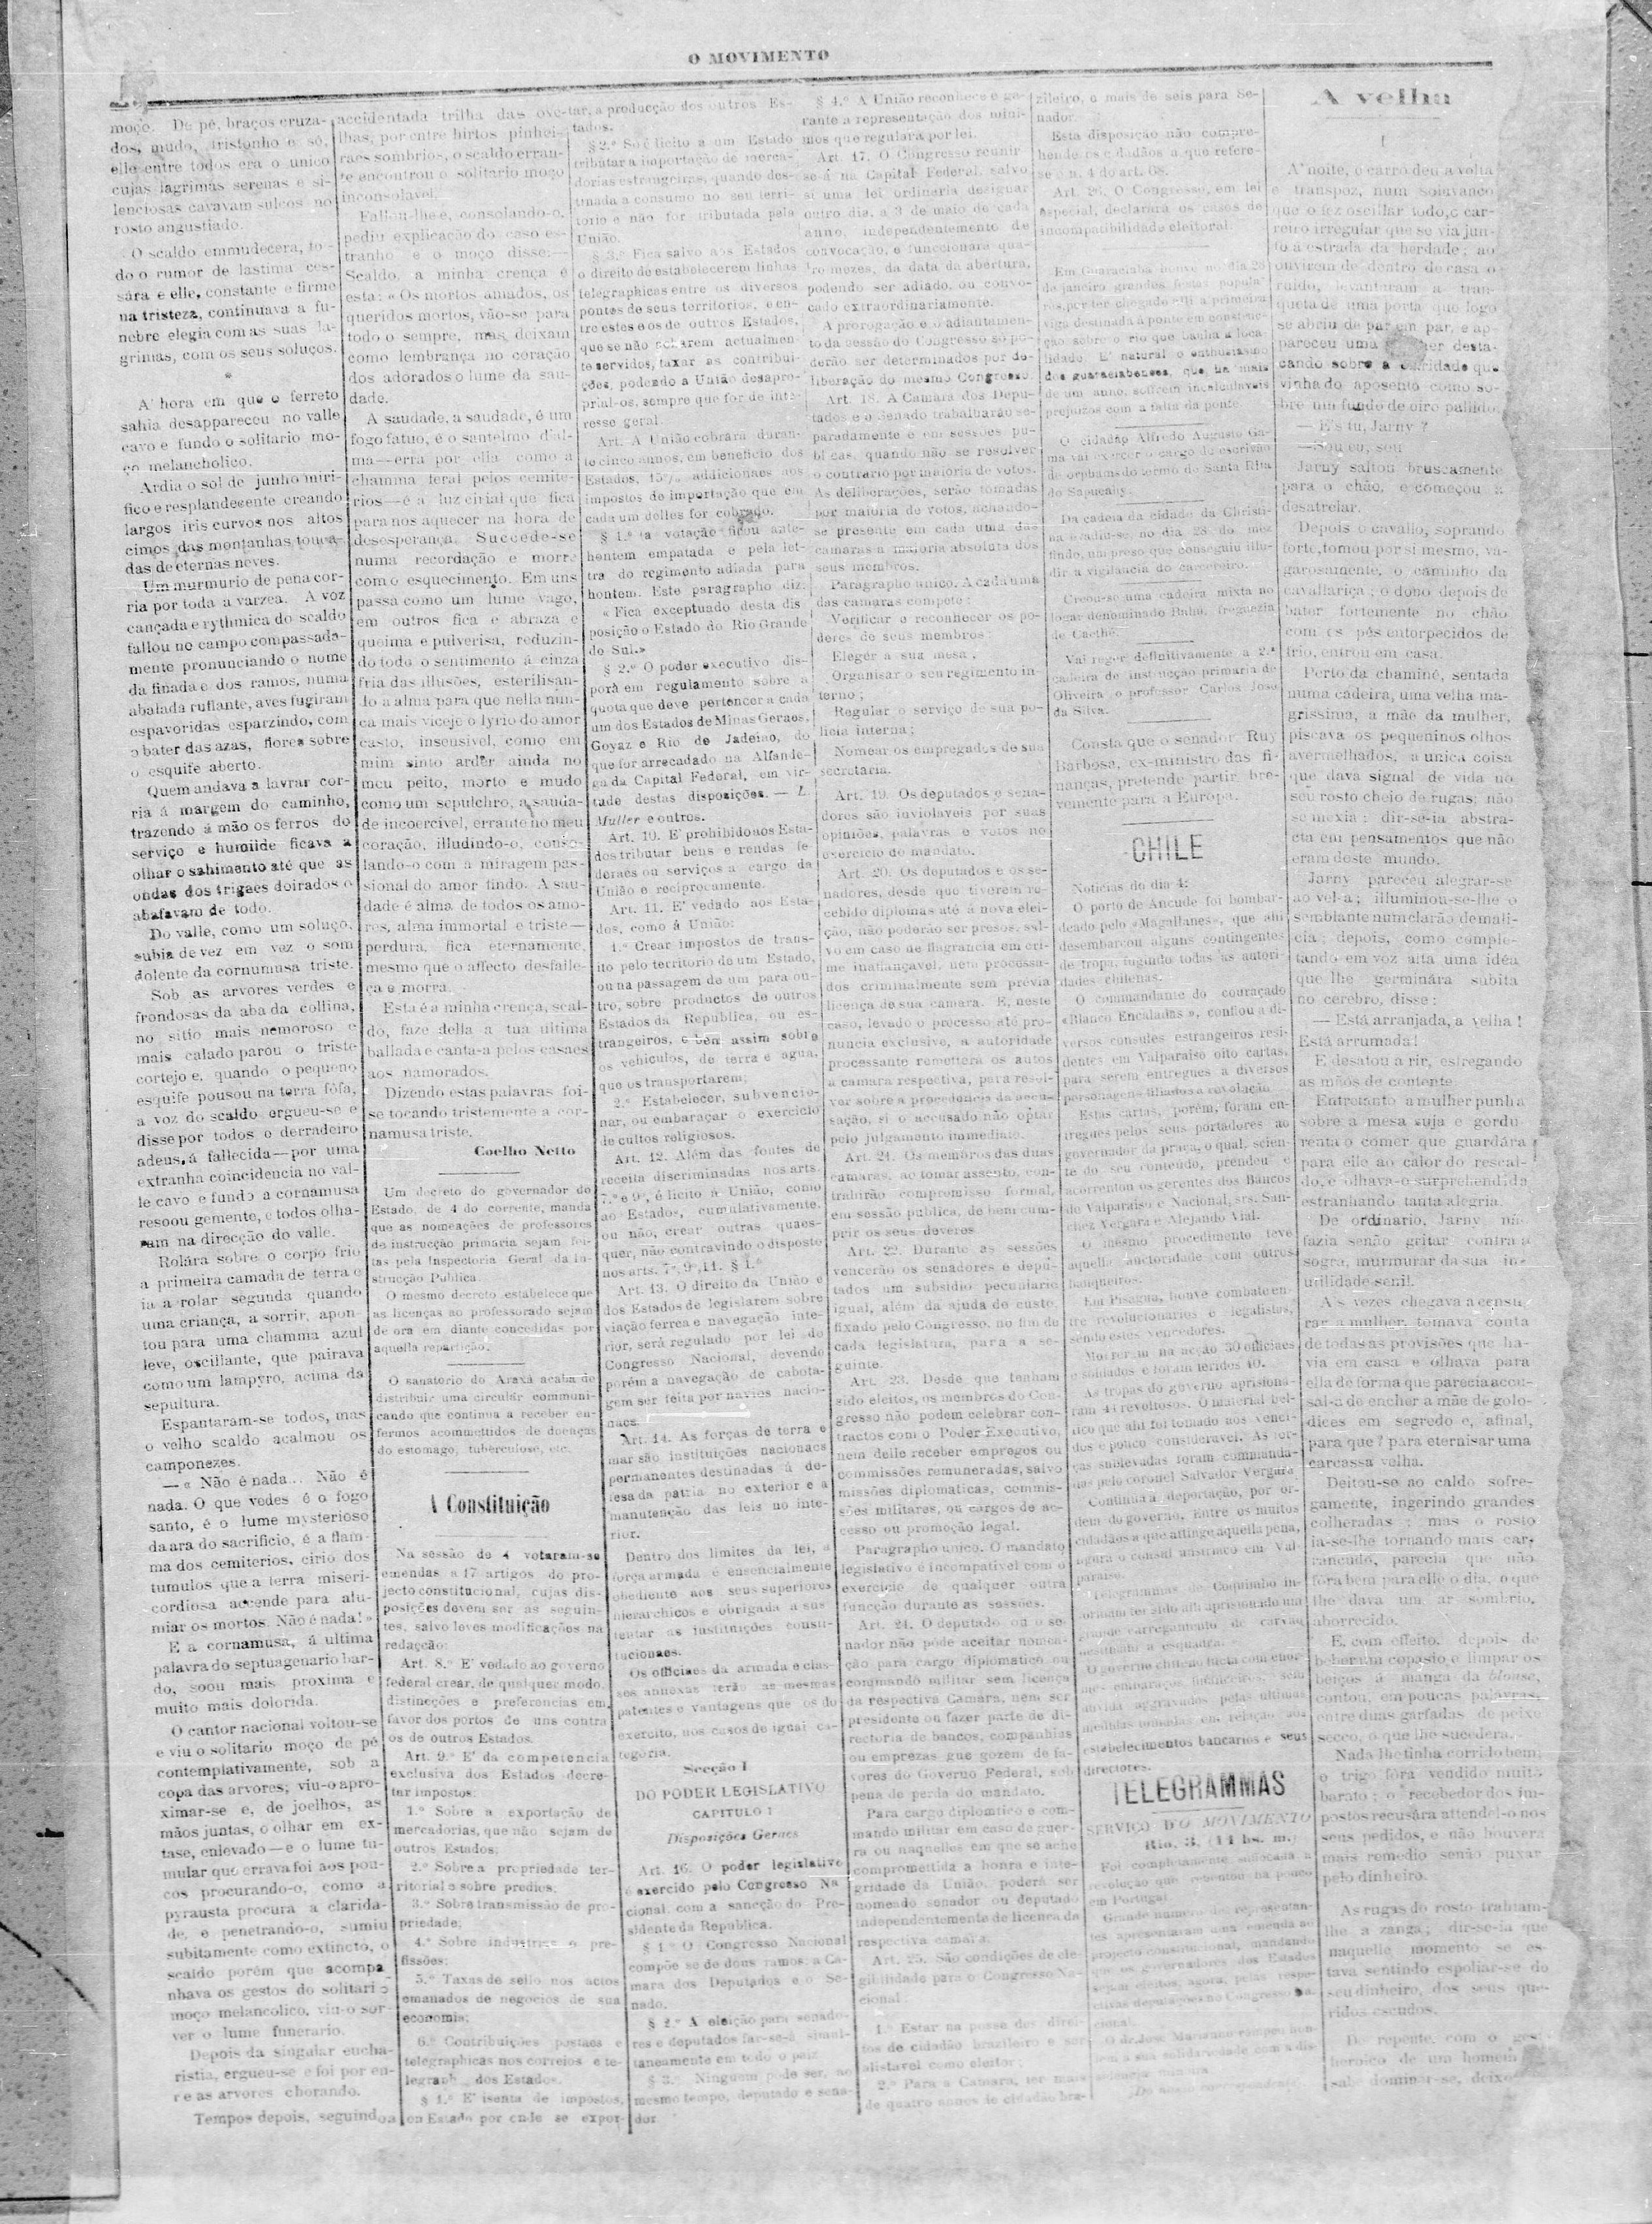 O MOVIMENTO
moço. De pé, braços cruza-
dos, mudo, tristonho e só,
elle entre todos era o unico
cujas lagrimas serenas e si-
lenciosas cavavam sulcos no
rosto angustiado.
O scaldo emmudecera, to-
do o rumor de lastima ces-
sára e elle, constante e firme
na tristeza, continuava a fu-
nebre elegia com as suas la-
grimas, com os seus soluços.
*
A' hora em que o ferreto
sahia desappareceu no valle
cavo e fundo o solitario mo-
ço melancholico.
Ardia o sol de junho miri-
fico e resplandecente creando
largos iris curvos nos altos
cimos das montanhas touca-
das de eternas neves.
Um murmurio de pena cor-
ria por toda a varzea. A voz
cançada e rythmica do scaldo
fallou no campo compassada-
mente pronunciando o nome
da finada e dos ramos, numa
abalada ruflante, aves fugiram
espavoridas esparzindo, com
o bater das azas, flores sobre
o esquife aberto.
Quem andava a lavrar cor-
ria á margem do caminho,
trazendo á mão os ferros do
serviço e humilde ficava a
olhar o sahimento até que as
ondas dos trigaes doirados o
abafavam de todo.
Do valle, como um soluço,
subia de vez em vez o som
dolente da cornumusa triste.
Sob as arvores verdes e
frondosas da aba da collina,
no sitio mais nemoroso e
mais calado parou o triste
cortejo e, quando o pequeno
esquife pousou na terra fôfa,
a voz do scaldo ergueu-se e
disse por todos o derradeiro
adeus, á fallecida—por uma
extranha coincidencia no val-
le cavo e fundo a cornamusa
resoou gemente, e todos olha-
ram na direcção do valle.
Rolára sobre o corpo frio
a primeira camada de terra e
ia a rolar segunda quando
uma criança, a sorrir, apon-
tou para uma chamma azul
leve, oscillante, que pairava
como um lampyro, acima da
sepultura.
Espantaram-se todos, mas
o velho scaldo acalmou os
camponezes.
—« Não é nada... Não é
nada. O que vedes é o fogo
santo, é o lume mysterioso
da ara do sacrificio, é a flam-
ma dos cemiterios, cirio dos
tumulos que a terra miseri-
cordiosa accende para alu-
miar os mortos. Não é nada!»
E a cornamusa, á ultima
palavra do septuagenario bar-
do, soou mais proxima e
muito mais dolorida.
O cantor nacional voltou-se
e viu o solitario moço de pé
contemplativamente, sob a
copa das arvores; viu-o apro-
ximar-se e, de joelhos, as
mãos juntas, o olhar em ex-
tase, enlevado—e o lume tu-
mular que errava foi aos pou-
cos procurando-o, como a
pyrausta procura a clarida-
de, e penetrando-o, sumiu
subitamente como extincto, o
scaldo porém que acompa
nhava os gestos do solitario
moço melancolico, viu-o sor-
ver o lume funerario.
Depois da singular eucha-
ristia, ergueu-se e foi por en-
re as arvores chorando.
Tempos depois, seguindo a
accidentada trilha das ove-
lhas, por entre hirtos pinhei-
raes sombrios, o scaldo erran-
te encontrou o solitario moço
inconsolavel.
Fallou-lhe e, consolando-o,
pediu explicação do caso es-
tranho e o moço disse:—
Scaldo, a minha crença é
esta: « Os mortos amados, os
queridos mortos, vão-se para
todo o sempre, mas deixam
como lembrança no coração
dos adorados o lume da sau-
dade.
A saudade, a saudade, é um
fogo fatuo, é o santelmo d'al-
ma—erra por ella como a
chamma feral pelos cemite-
rios—é a luz cirial que fica
para nos aquecer na hora de
desesperança. Succede-se
numa recordação e morre
com o esquecimento. Em uns
passa como um lume vago,
em outros fica e abraza e
queima e pulverisa, reduzin-
do todo o sentimento á cinza
fria das illusões, esterilisan-
do a alma para que nella nun-
ca mais viceje o lyrio do amor
casto, insensivel, como em
mim sinto arder ainda no
meu peito, morto e mudo
como um sepulchro, a sauda-
de incoercivel, errante no meu
coração, illudindo-o, conso-
lando-o com a miragem pas-
sional do amor findo. A sau-
dade é alma de todos os amo-
res, alma immortal e triste—
perdura, fica eternamente,
mesmo que o affecto desfalle-
ça e morra.
Esta é a minha crença, scal-
do, faze della a tua ultima
ballada e canta-a pelos casaes
aos namorados.
Dizendo estas palavras foi-
se tocando tristemente a cor-
namusa triste.
Coelho Netto
Um decreto do governador do
Estado, de 4 do corrente, manda
que as nomeações de professores
de instrucção primaria sejam fei-
tas pela Inspectoria Geral da In-
strucção Publica.
O mesmo decreto estabelece que
as licenças ao professorado sejam
de ora em diante concedidas por
aquella repartição.
O sanatorio do Araxá acaba de
distribuir uma circular communi-
cando que continua a receber en-
fermos acommettidos de doenças
do estomago, tuberculose, etc.
A Constituição
Na sessão de 4 votaram-se
emendas a 17 artigos do pro-
jecto constitucional, cujas dis-
posições devem ser as seguin-
tes, salvo leves modificações na
redacção:
Art. 8.º E' vedado ao governo
federal crear, de qualquer modo,
distincções e preferencias em
favor dos portos de uns contra
os de outros Estados.
Art. 9.º E' da competencia
exclusiva dos Estados decre-
tar impostos:
1.º Sobre a exportação de
mercadorias, que não sejam de
outros Estados;
2.º Sobre a propriedade ter-
ritorial e sobre predios;
3.º Sobre transmissão de pro-
priedade;
4.º Sobre industrias e pro-
fissões;
5.º Taxas de sello nos actos
emanados de negocios de sua
economia;
6.º Contribuições postaes e
telegraphicas nos correios e te-
legraph dos Estados.
§ 1.º E' isenta de impostos,
no Estado por onde se expor-
tar, a producção dos outros Es-
tados.
§ 2.º Só é licito a um Estado
tributar a importação de merca-
dorias estrangeiras, quando des-
tinada a consumo no seu terri-
torio e não for tributada pela
União.
§ 3.º Fica salvo aos Estados
o direito de estabelecerem linhas
telegraphicas entre os diversos
pontos de seus territorios, e en-
tre estes e os de outros Estados,
que se não acharem actualmen-
te servidos, taxar as contribui-
ções, podendo a União desapro-
prial-os, sempre que for de inte-
resse geral.
Art. A União cobrará duran-
te cinco annos, em beneficio dos
Estados, 15% addicionaes aos
impostos de importação que em
cada um delles for cobrado.
§ 1.º (a votação ficou ante-
hontem empatada e pela let-
tra do regimento adiada para
hontem. Este paragrapho diz:
« Fica exceptuado desta dis
posição o Estado do Rio Grande
do Sul.»
§ 2.º O poder executivo dis-
porá em regulamento sobre a
quota que deve pertencer a cada
um dos Estados de Minas Geraes,
Goyaz e Rio de Jadeiao, do
que for arrecadado na Alfande-
ga da Capital Federal, em vir-
tude destas disposições.— L.
Muller e outros.
Art. 10. E' prohibido aos Esta-
dos tributar bens e rendas fe-
deraes ou serviços a cargo da
União e reciprocamente.
Art. 11. E' vedado aos Esta-
dos, como á União:
1.º Crear impostos de trans-
ito pelo territorio de um Estado,
ou na passagem de um para ou-
tro, sobre productos de outros
Estados da Republica, ou es-
trangeiros, e bem assim sobre
os vehiculos, de terra e agua,
que os transportarem;
2.º Estabelecer, subvencio-
nar, ou embaraçar o exercicio
de cultos religiosos.
Art. 12. Além das fontes de
receita discriminadas nos arts.
7.º e 9º, é licito á União, como
ao Estados, cumulativamente,
ou não, crear outras quaes-
quer, não contravindo o disposto
nos arts. 7º, 9º, 11. § 1.º
Art. 13. O direito da União e
dos Estados de legislarem sobre
viação ferrea e navegação inte-
rior, será regulado por lei do
Congresso Nacional, devendo
porém a navegação de cabota-
gem ser feita por navios nacio-
naes.
Art. 14. As forças de terra e
mar são instituições nacionaes
permanentes destinadas á de-
fesa da patria no exterior e a
manutenção das leis no inte-
rior.
Dentro dos limites da lei, a
força armada é essencialmente
obediente aos seus superiores
hierarchicos e obrigada a sus
tentar as instituições consti-
tucionaes.
Os officiaes da armada e clas-
ses annexas terão as mesmas
patentes e vantagens que os do
exercito, nos casos de igual ca-
tegoria.
Secção I
DO PODER LEGISLATIVO
CAPITULO I
Disposições Geraes
Art. 16. O poder legislativo
é exercido pelo Congresso Na
cional, com a sancção do Pre-
sidente da Republica.
§ 1.º O Congresso Nacional
compõe se de dous ramos: a Ca-
mara dos Deputados e o Se-
nado.
§ 2.º A eleição para senado-
res e deputados far-se-á simul-
taneamente em todo o paiz.
§ 3.º Ninguem pode ser, ao
mesmo tempo, deputado e sena-
dor
§ 4.º A União reconhece e ga-
rante a representação dos mini-
mos que regulará por lei.
Art. 17. O Congresso reunir
se-á na Capital Federal, salvo
si uma lei ordineria designar
outro dia, a 3 de maio de cada
anno, independentemente de
convocação, e funccionará qua-
tro mezes, da data da abertura,
podendo ser adiado, ou convo-
cado extraordinariamente.
A prorogação e o adiantamen-
to da sessão do Congresso só po-
derão ser determinados por de-
liberação do mesmo Congresso.
Art. 18. A Camara dos Depu-
tados e o Senado trabalharão se-
paradamente e em sessões pu-
bl cas, quando não se resolver
o contrario por maioria de votos.
As deliberações, serão tomadas
por maioria de votos, achando-
se presente em cada uma das
camaras a maioria absoluta dos
seus membros.
Paragrapho unico. A cada uma
das camaras compete:
Verificar e reconhecer os po-
deres de seus membros;
Eleger a sua mesa;
Organisar o seu regimento in
terno;
Regular o serviço de sua po-
licia interna;
Nomear os empregados de sua
secretaria.
Art. 19. Os deputados e sena-
dores são inviolaveis por suas
opiniões, palavras e votos no
exercicio do mandato.
Art. 20. Os deputados e os se-
nadores, desde que tiverem re-
cebido diplomas até á nova elei-
ção, não poderão ser presos, sal-
vo em caso de flagrancia em cri-
me inafiançavel, nem processa-
dos criminalmente sem prévia
licença de sua camara. E, neste
caso, levado o processo até pro-
nuncia exclusive, a autoridade
processante remetterá os autos
a camara respectiva, para resol-
ver sobre a procedencia da accu-
sação, si o accusado não optar
pelo julgamento immediato.
Art. 21. Os membros das duas
camaras, ao tomar assento, con-
trahirão compromisso formal,
em sessão publica, de bem cum-
prir os seus deveres
Art. 22. Durante as sessões
vencerão os senadores e depu-
tados um subsidio pecuniario
igual, além da ajuda de custo,
fixado pelo Congresso, no fim de
cada legislatura, para a se-
guinte.
Art. 23. Desde que tenham
sido eleitos, os membros do Con-
gresso não podem celebrar con-
tractos com o Poder Executivo,
nem delle receber empregos ou
commissões remuneradas, salvo
missões diplomaticas, commis-
sões militares, ou cargos de ac-
cesso ou promoção legal.
Paragrapho unico. O mandato
legislativo é incompativel com o
exercicio de qualquer outra
funcção durante as sessões.
Art. 24. O deputado ou o se-
nador não póde aceitar nomea-
ção para cargo diplomatico ou
commando militar sem licença
da respectiva Camara, nem ser
presidente ou fazer parte de di-
rectoria de bancos, companhias
ou emprezas que gozem de fa-
vores do Governo Federal, sob
pena de perda do mandato.
Para cargo diplomtico e com-
mando militar em caso de guer-
ra ou naquelles em que se ache
comprometida a honra e inte-
gridade da União, poderá ser
nomeado senador ou deputado
independentemente de licença da
respectiva camara.
Art. 25. São condições de ele-
gibilidade para o Congresso Na-
cional:
1.º Estar na posse dos direi-
tos de cidadão brazileiro e ser
alistavel como eleitor;
2.º Para a Camara, ter mais
de quatro annos de cidadão bra-
zileiro, e mais de seis para Se-
nador.
Esta disposição não compre-
hende os cidadãos a que refere-
se o n. 4 do art. 68.
Art. 26. O Congresso, em lei
especial, declarará os casos de
incompatibilidade eleitoral.
Em Guaraciaba houve no dia 26
de janeiro grandes festas popula-
res, por ter chegado alli a primeira
viga destinada á ponte em construc-
ção sobre o rio que banha a loca-
lidade. E' natural o enthusiasmo
dos guaraciabenses, que, ha mais
de um anno, soffrem incalculaveis
prejuizos com a falta da ponte.
O cidadão Alfredo Augusto Ga-
ma vai exercer o cargo de escrivão
de orphams do termo de Santa Rita
do Sapucahy.
Da cadeia da cidade da Christi-
na evadiu-se, no dia 28 do mez
findo, um preso que conseguiu illu-
dir a vigilancia do carcereiro.
Creou-se uma cadeira mixta no
logar denominado Bahú, freguezia
de Caethé.
Vai reger definitivamente a 2.ª
cadeira de instrucção primaria de
Oliveira o professor Carlos José
da Silva.
Consta que o senador Ruy
Barbosa, ex-ministro das fi-
nanças, pretende partir bre-
vemente para a Europa.
CHILE
Noticias do dia 4:
O porto de Ancude foi bombar-
deado pelo «Magallanes», que ahi
desembarcou alguns contingentes
de tropa, fugindo todas as autori-
dades chilenas.
O commandante do couraçado
«Blanco Encaladas», confiou a di-
versos consules estrangeiros resi-
dentes em Valparaiso oito cartas,
para serem entregues a diversos
personagens filiados a revolução.
Estas cartas, porém, foram en-
tregues pelos seus portadores ao
governador da praça, o qual, scien-
te do seu conteúdo, prendeu e
acorrentou os gerentes dos Bancos
de Valparaiso e Nacional, srs. San-
chez Vergara e Alejando Vial.
O mesmo procedimento teve
aquella auctoridade com outros
banqueiros.
Em Pisagua, houve combate en-
tre revolucionarios e legalistas,
sendo estes vencedores.
Morreram na acção 30 officiaes
e soldados e foram feridos 40.
As tropas do governo aprisiona-
ram 44 revoltosos. O material bel-
lico que ahi foi tomado aos venci-
dos é pouco consideravel. As for-
ças sublevadas foram commanda-
das pelo coronel Salvador Vergara
Continua a deportação, por or-
dem do governo. Entre os muitos
cidadãos a que attinge aquella pena,
figura o consul austriaco em Val-
paraiso.
Telegrammas de Coquimbo in-
formam ter sido alli aprisionado um
grande carregamento de carvão
destinado a esquadra.
O governo chileno lucta com enor-
mes embaraços financeiros, sem
duvida aggravados pelas ultimas
medidas tomadas em relação aos
estabelecimentos bancarios e seus
directores.
TELEGRAMMAS
SERVIÇO DO MOVIMENTO
Rio, 3, (11 hs. m.)
Foi completamente suffocada a
revolução que rebentou ha pouco
em Portugal.
Grande numero de representan-
tes apresentaram uma emenda ao
projecto constitucional, mandando
que os governadores dos Estados
sejam eleitos, agora, pelas respe-
ctivas deputações no Congresso Na-
cional.
O dr. José Marianno rompeu hon-
tem a sua solidariedade com a dis-
sidencia mineira.
(Do nosso correspondente).
A velha
I
A' noite, o carro deu a volta
e transpoz, num solavanco
que o fez oscillar todo, o car-
reiro irregular que se via jun-
to á estrada da herdade; ao
ouvirem de dentro de casa o
ruido, levantaram a tran-
queta de uma porta que logo
se abriu de par em par, e ap-
pareceu uma mulher desta-
cando sobre a claridade que
vinha do aposento como so-
bre um fundo de oiro pallido.
— E's tu, Jarny ?
—Sou eu, sou
Jarny saltou bruscamente
para o chão, e começou a
desatrelar.
Depois o cavallo, soprando
forte, tomou por si mesmo, va-
garosamente, o caminho da
cavallariça; o dono depois de
bater fortemente no chão
com os pés entorpecidos de
frio, entrou em casa.
Perto da chaminé, sentada
numa cadeira, uma velha ma-
grissima, a mãe da mulher,
piscava os pequeninos olhos
avermelhados, a unica coisa
que dava signal de vida no
seu rosto cheio de rugas; não
se mexia; dir-se-ia abstra-
cta em pensamentos que não
eram deste mundo.
Jarny pareceu alegrar-se
ao vel-a; illuminou-se-lhe o
semblante num clarão de mali-
cia; depois, como comple-
tando em voz alta uma idéa
que lhe germinára subita
no cerebro, disse:
— Está arranjada, a velha !
Está arrumada!
E desatou a rir, esfregando
as mãos de contente
Entretanto a mulher punha
sobre a mesa suja e gordu-
renta o comer que guardára
para elle ao calor do rescal-
do, e olhava-o surprehendida
estranhando tanta alegria.
De ordinario, Jarny não
fazia senão gritar contra a
sogra, murmurar da sua in-
utilidade senil.
A's vezes chegava a censu-
rar a mulher, tomava conta
de todas as provisões que ha-
via em casa e olhava para
ella de forma que parecia accu-
sal-a de encher a mãe de golo-
dices em segredo e, afinal,
para que? para eternisar uma
carcassa velha.
Deitou-se ao caldo sofre-
gamente, ingerindo grandes
colheradas; mas o rosto
ia-se-lhe tornando mais car-
rancudo, parecia que não
fôra bem para elle o dia, o que
lhe dava um ar sombrio,
aborrecido.
E, com effeito, depois de
beber um copasio e limpar os
beiços á manga da blouse,
contou, em poucas palavras,
entre duas garfadas de peixe
secco, o que lhe succedera.
Nada lhe tinha corrido bem;
o trigo fôra vendido muito
barato; o recebedor dos im-
postos recusára attendel-o nos
seus pedidos, e não houvera
mais remedio senão puxar
pelo dinheiro.
As rugas do rosto trahiam-
lhe a zanga; dir-se-ia que
naquelle momento se es-
tava sentindo espoliar-se do
seu dinheiro, dos seus que-
ridos escudos.
De repente, com o gesto
heroico de um homem
sabe dominar-se, deixo